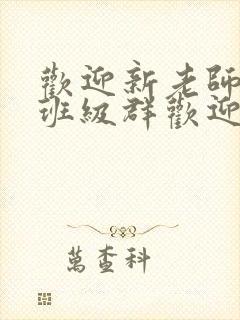 歡迎新老師
班級群歡迎
萬查科